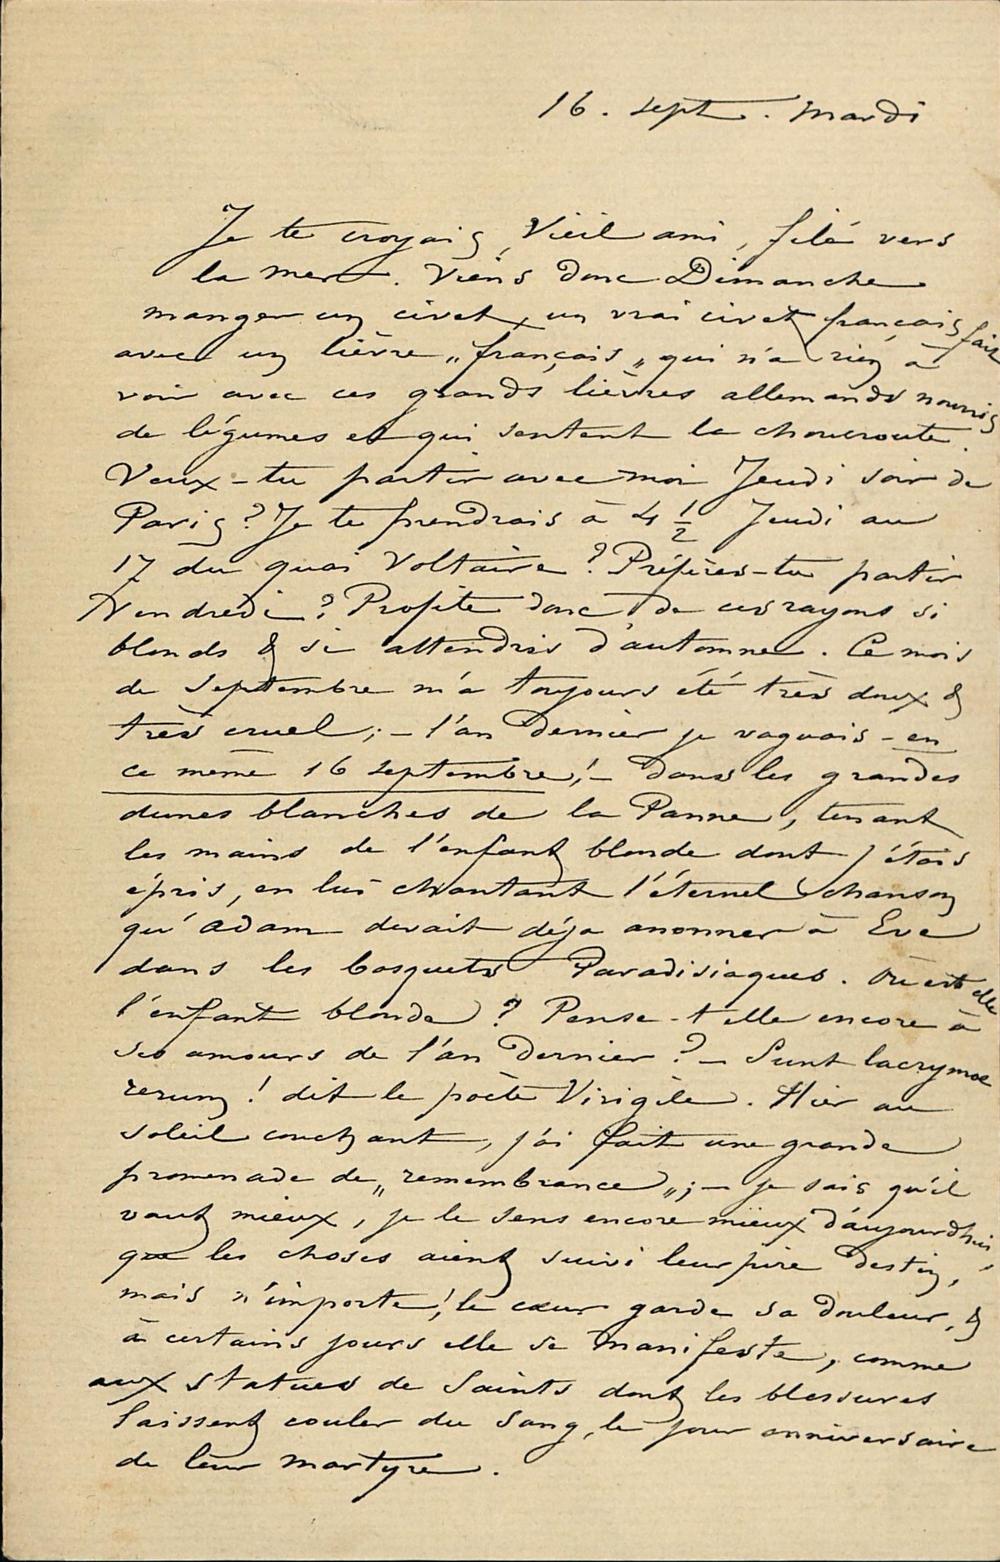 16. Sept. Mardi
Je te croyais, Vieil ami, filé vers
la mer. Viens donc Dimanche
manger un civet, un vrai civet français fait
avec un lièvre „français„ qui n'a rien à
voir avec ces grands lièvres allemands nourris
de légumes et qui sentent la choucroute.
Veux-tu partir avec moi Jeudi soir de
Paris? Je te prendrais à 4 1/2 Jeudi au
17 du quai Voltaire? Préfères-tu partir
Vendredi? Profite donc de ces rayons si
blonds & si attendris d'automne. Ce mois
de Septembre m'a toujours été très doux &
très cruel; – l'an dernier je vaguais – en
ce même 16 septembre! – dans les grandes
dunes blanches de la Panne, tenant
les mains de l'enfant blonde dont j'étais
épris, en lui chantant l'éternel chanson
qu'adam devait déja anonner à Eve
dans les bosquets Paradisiaques. Où est elle
l'enfant blonde? Pense-t elle encore à
ses amours de l'an dernier? – Sunt lacrymae
rerum! dit le poète Virigile. Hier au
soleil couchant, j'ai fait une grande
promenade de „remembrance„; – je sais qu'il
vaut mieux, je le sens encore mieux d'aujourdhui,
que les choses aient suivi leur pire destin,
mais n'importe! le cœur garde sa douleur, &
à certains jours elle se manifeste, comme
aux statues de Saints dont les blessures
laissent couler du sang, le jour anniversaire
de leur martyre.